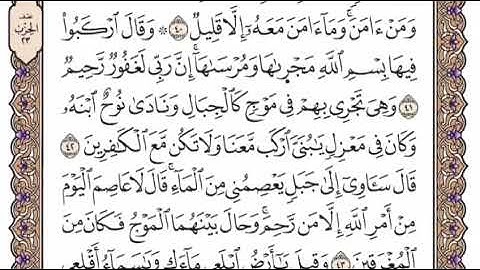 وَمَنْ ءَامَنَ وَمَآ ءَامَنَ مَعَهُۥٓ إِلَّا قَلِيلٌ ٤٠ ۞ وَقَالَ ٱرْكَبُوا۟
فِيهَا بِسْمِ ٱللَّهِ مَجْر۪ىٰهَا وَمُرْسَىٰهَآ إِنَّ رَبِّى لَغَفُورٌ رَّحِيمٌ
٤١ وَهِىَ تَجْرِى بِهِمْ فِى مَوْجٍ كَٱلْجِبَالِ وَنَادَىٰ نُوحٌ ٱبْنَهُۥ
وَكَانَ فِى مَعْزِلٍ يَٰبُنَىَّ ٱرْكَب مَّعَنَا وَلَا تَكُن مَّعَ ٱلْكَٰفِرِينَ ٤٢
قَالَ سَـَٔاوِىٓ إِلَىٰ جَبَلٍ يَعْصِمُنِى مِنَ ٱلْمَآءِ قَالَ لَا عَاصِمَ ٱلْيَوْمَ
مِنْ أَمْرِ ٱللَّهِ إِلَّا مَن رَّحِمَ وَحَالَ بَيْنَهُمَا ٱلْمَوْجُ فَكَانَ مِنَ
ٱلْمُغْرَقِينَ ٤٣ وَقِيلَ يَٰٓأَرْضُ ٱبْلَعِى مَآءَكِ وَيَٰسَمَآءُ أَقْلِعِى
الحزب
٢٣